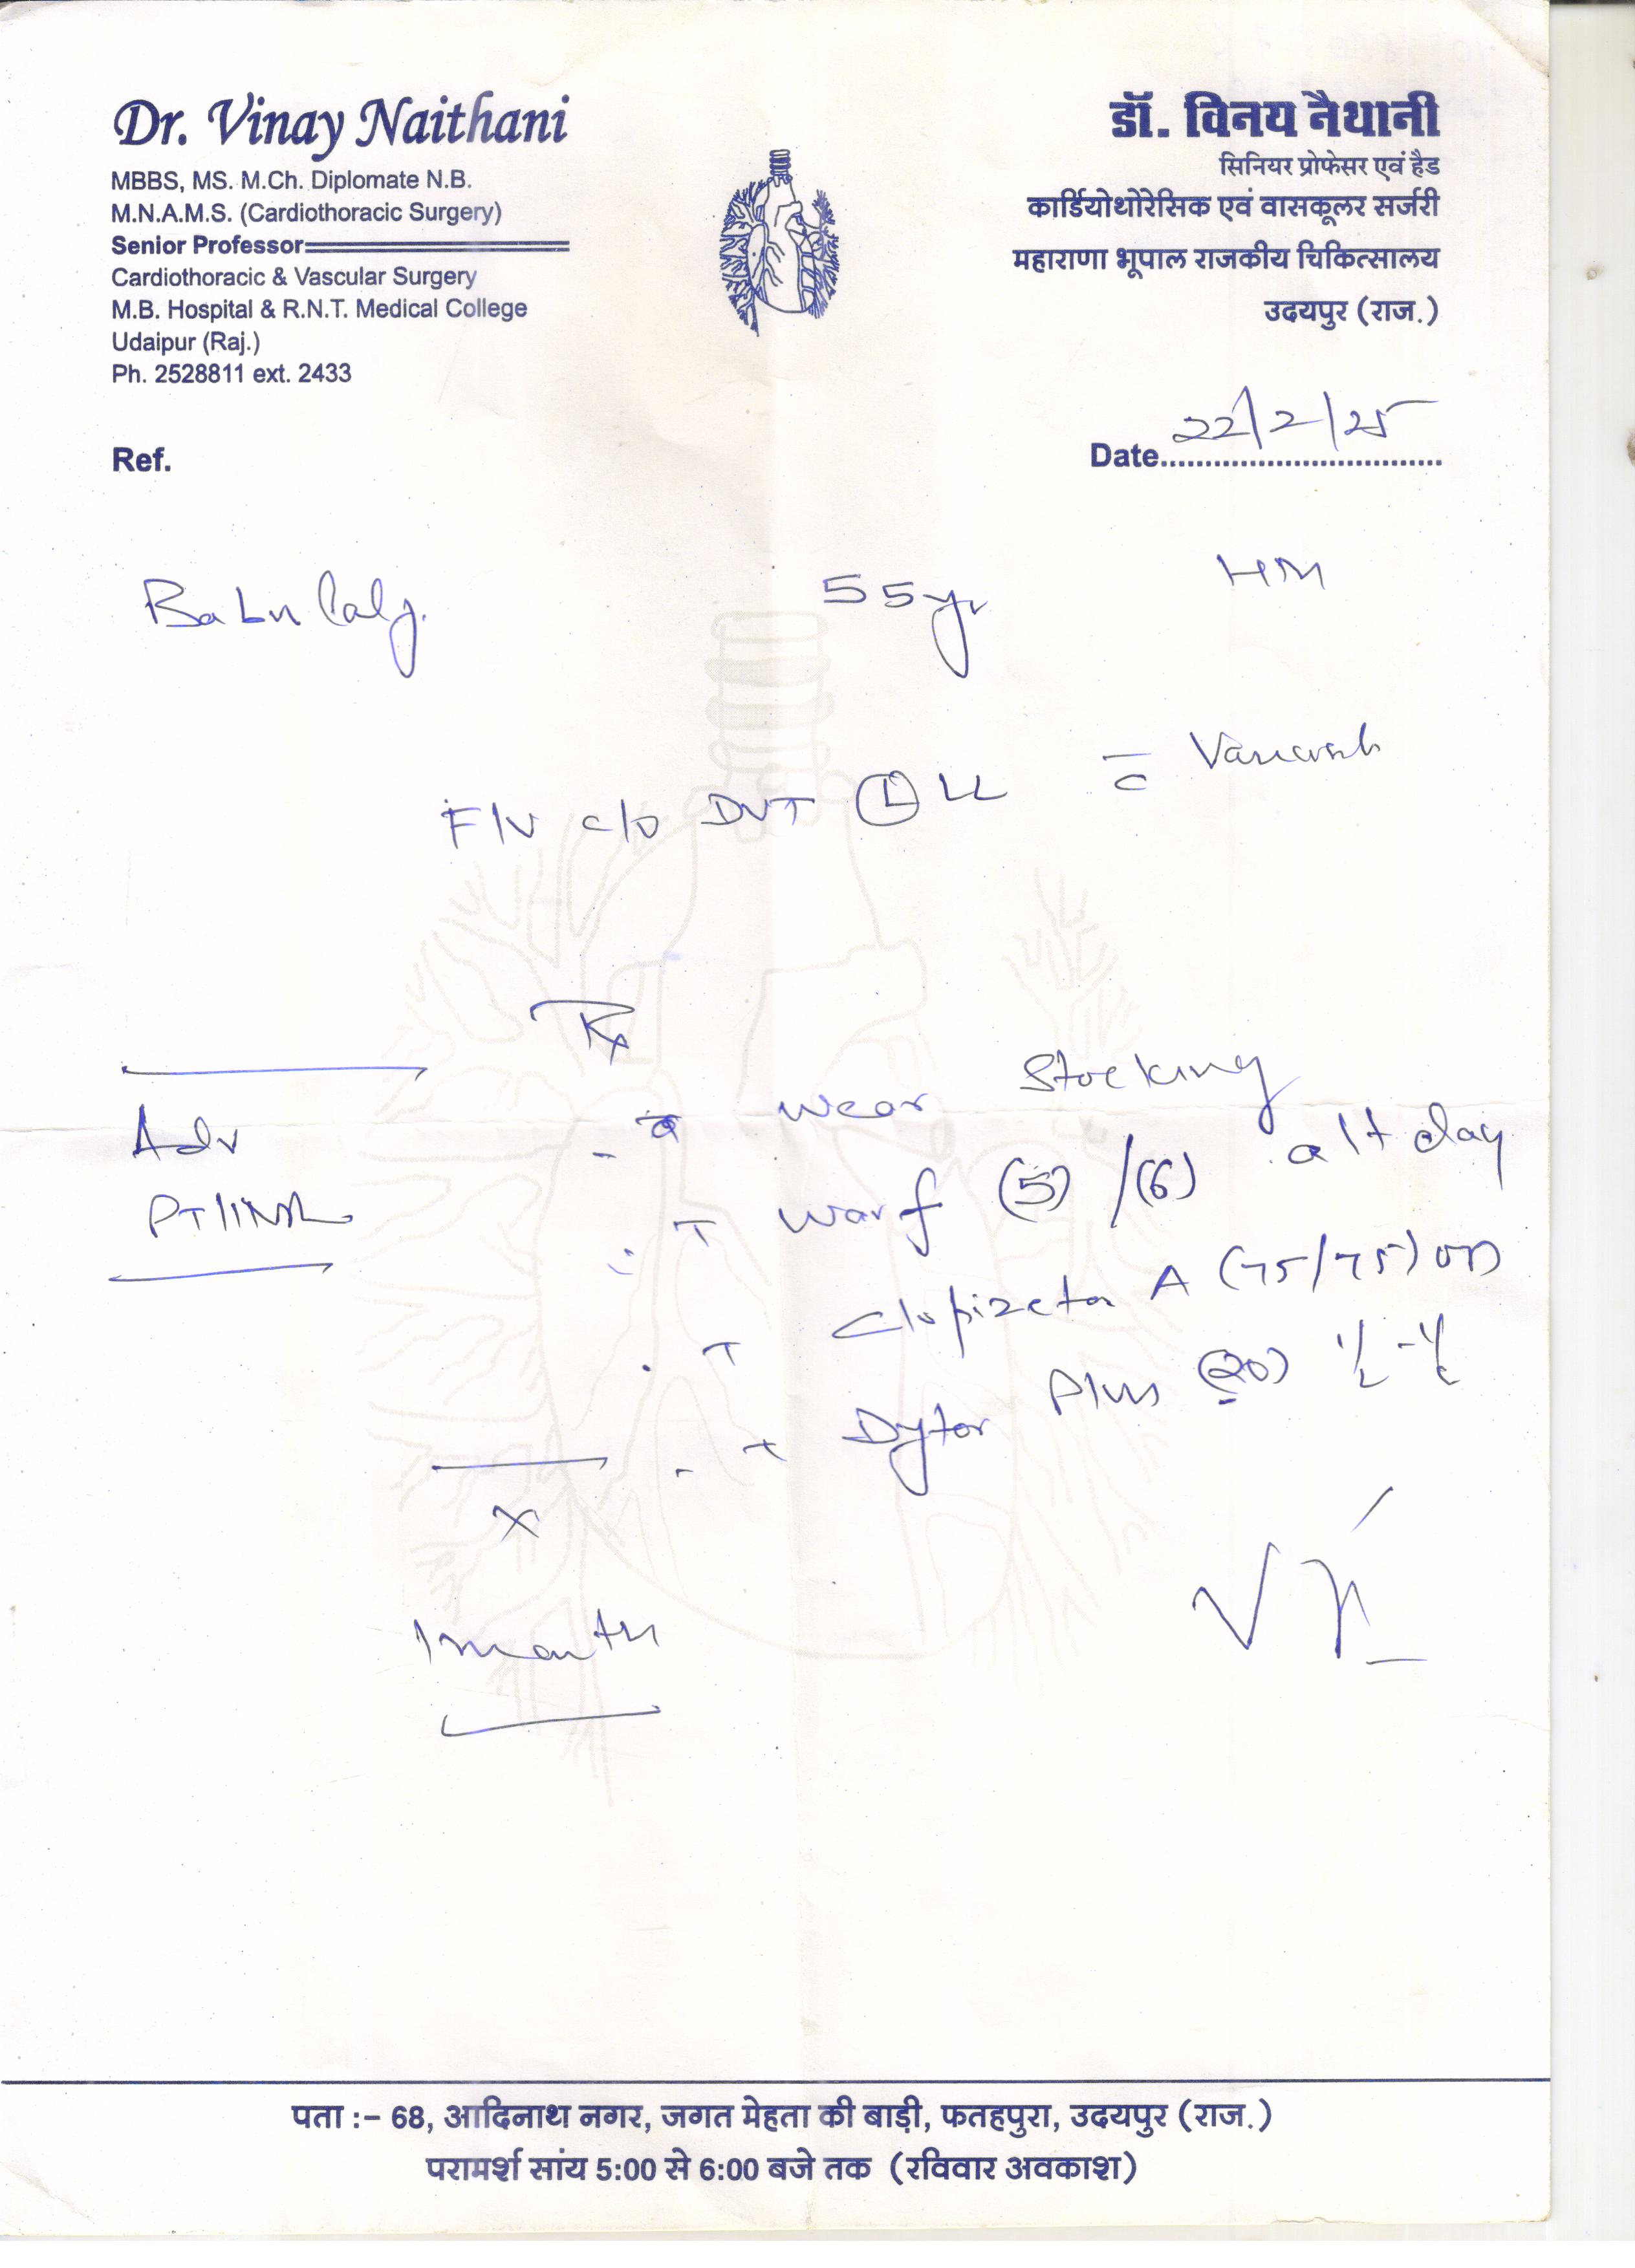 Dr. Vinay Naithani
MBBS, MS. M.Ch. Diplomate N.B.
M.N.A.M.S. (Cardiothoracic Surgery)
Senior Professor
Cardiothoracic & Vascular Surgery
M.B. Hospital & R.N.T. Medical College
Udaipur (Raj.)
Ph. 2528811 ext. 2433
डॉ. विनय नैथानी
सिनियर प्रोफेसर एवं हैड
कार्डियोथोरेसिक एवं वासकूलर सर्जरी
महाराणा भूपाल राजकीय चिकित्सालय
उदयपुर (राज.)
Ref.
Date 22/2/25
Babu Lalj. 55yr
F/U c/o DVT (L) LL c̄
Rx
Adv
PT/INR
- wear stocking
- T Warf (5)/(6) alt day
- T Clopizeta A (75/75) OD
- T Dytor Plus (20) ½-½
x
1 month
पता :- 68, आदिनाथ नगर, जगत मेहता की बाड़ी, फतहपुरा, उदयपुर (राज.)
परामर्श सांय 5:00 से 6:00 बजे तक (रविवार अवकाश)